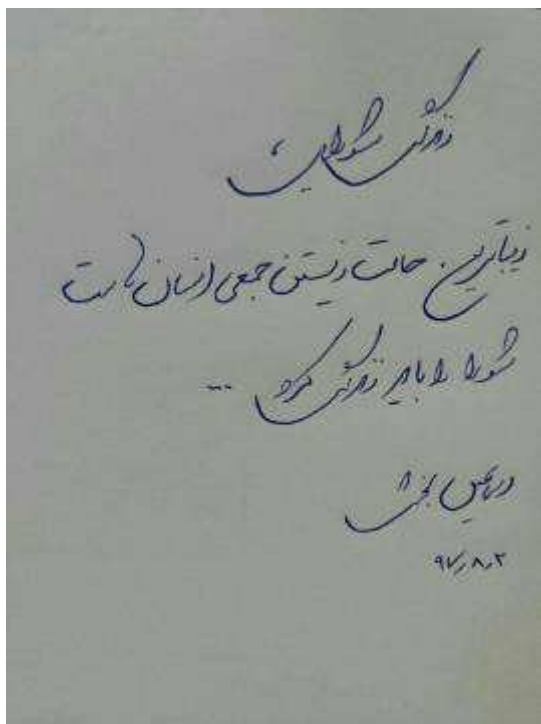 زندگی شورایی،
زیباترین حالت زیستن جمعی انسان‌هاست
شورا را باید زندگی کرد ...
بخشی
۹۷٫۸٫۲